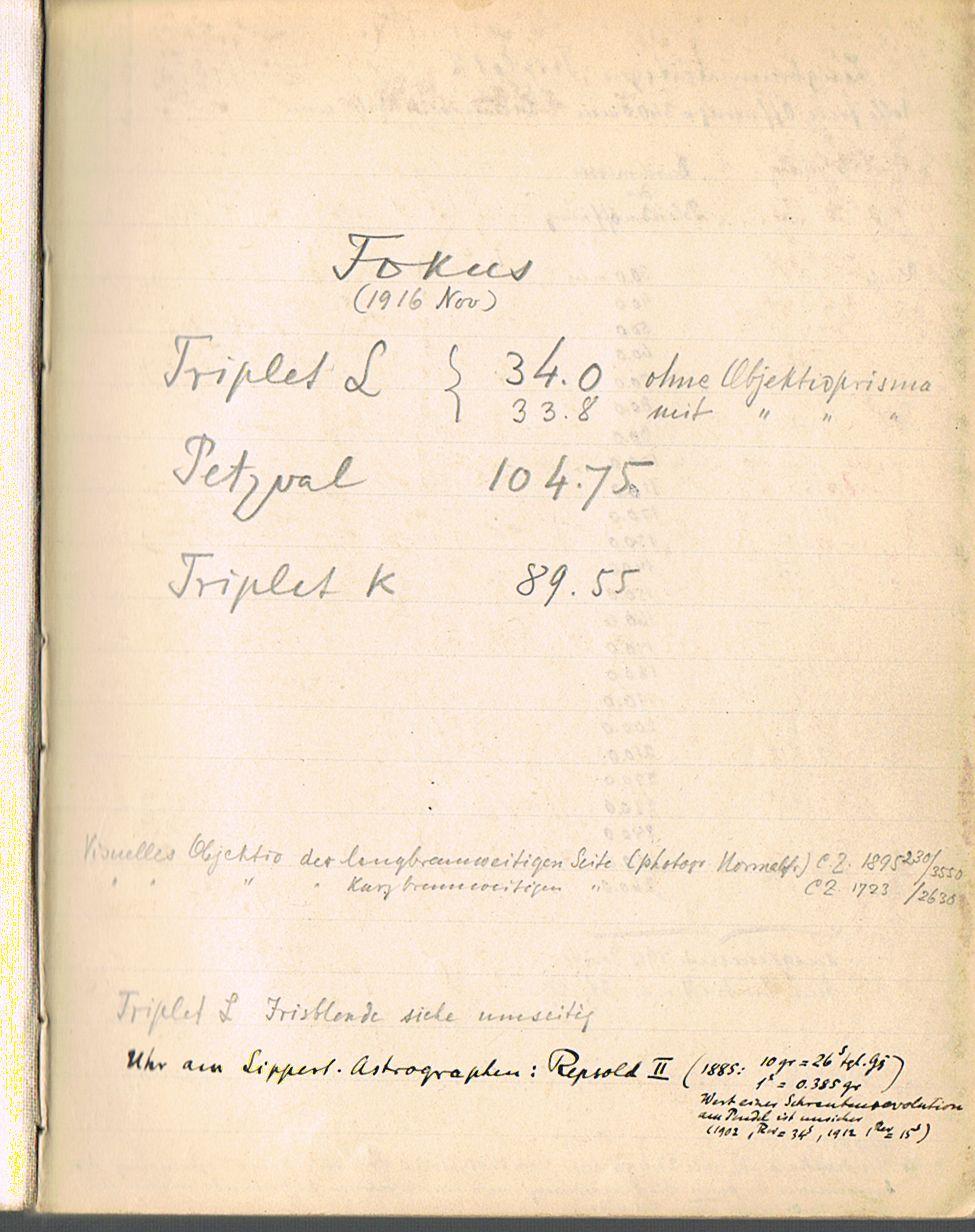 Fokus
(1916 Nov)
Triplet L { 34.0 ohne Objektivprisma
33.8 mit " " "
Petzval 104.75
Triplet K 89.55
Visuelles Objektiv der langbrennweitigen Seite (photogr. Normalfr.) C.Z. 1895 230/3550
" " " " Kurzbrennweitigen " C.Z. 1723 /2630
Triplet L Irisblende siehe umseitig
Uhr am Lippert-Astrographen: Repsold II (1885: 10 gr = 26ˢ tgl. Gg
1ˢ = 0.385 gr)
Wert einer Schraubenrevolution
am Pendel ist unsicher
(1902 1 Rev = 34ˢ, 1912 1 Rev = 15ˢ)